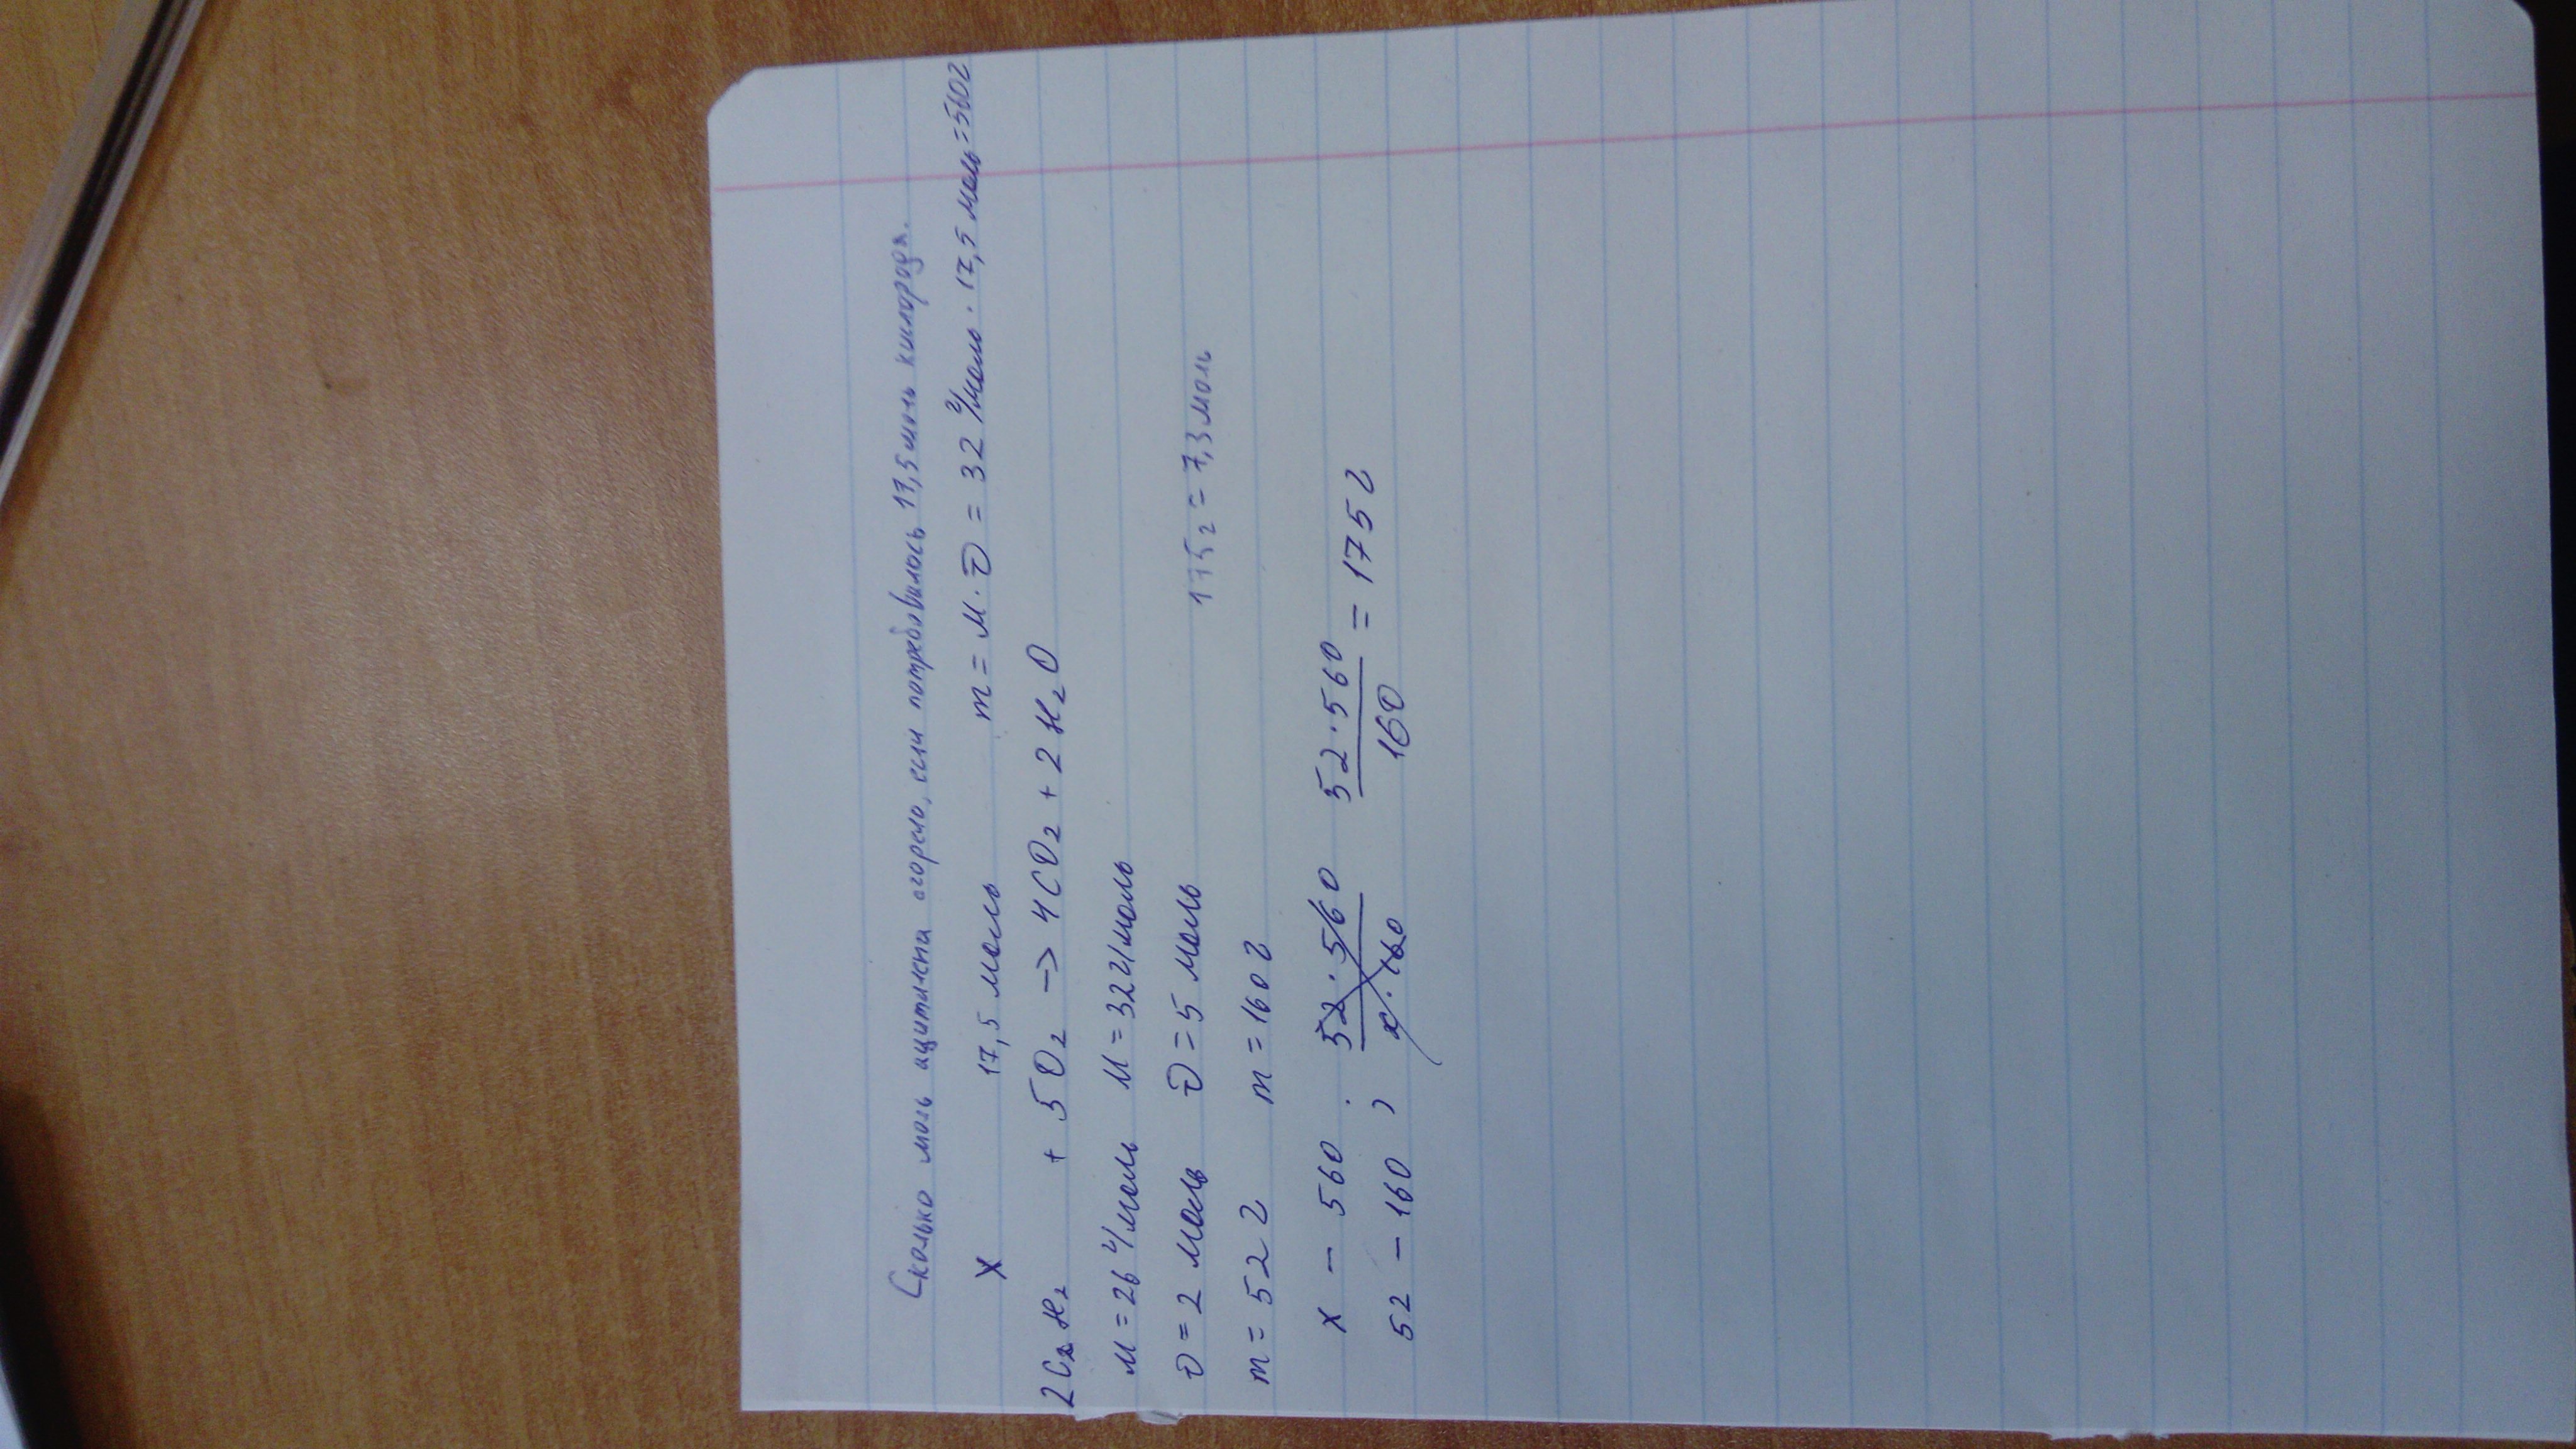 Сколько моль ацитилена сгорело, если потребовилось 17,5 моль кислорода.
X 17,5 моль m = M · ν = 32 г/моль · 17,5 моль = 560г
2C₂H₂ + 5O₂ → 4CO₂ + 2H₂O
M = 26 г/моль M = 32 г/моль
ν = 2 моль ν = 5 моль 175г = 7,3 моль
m = 52 г m = 160 г
x – 560 ; 52 · 560 / x · 160 52 · 560 / 160 = 175 г
52 – 160